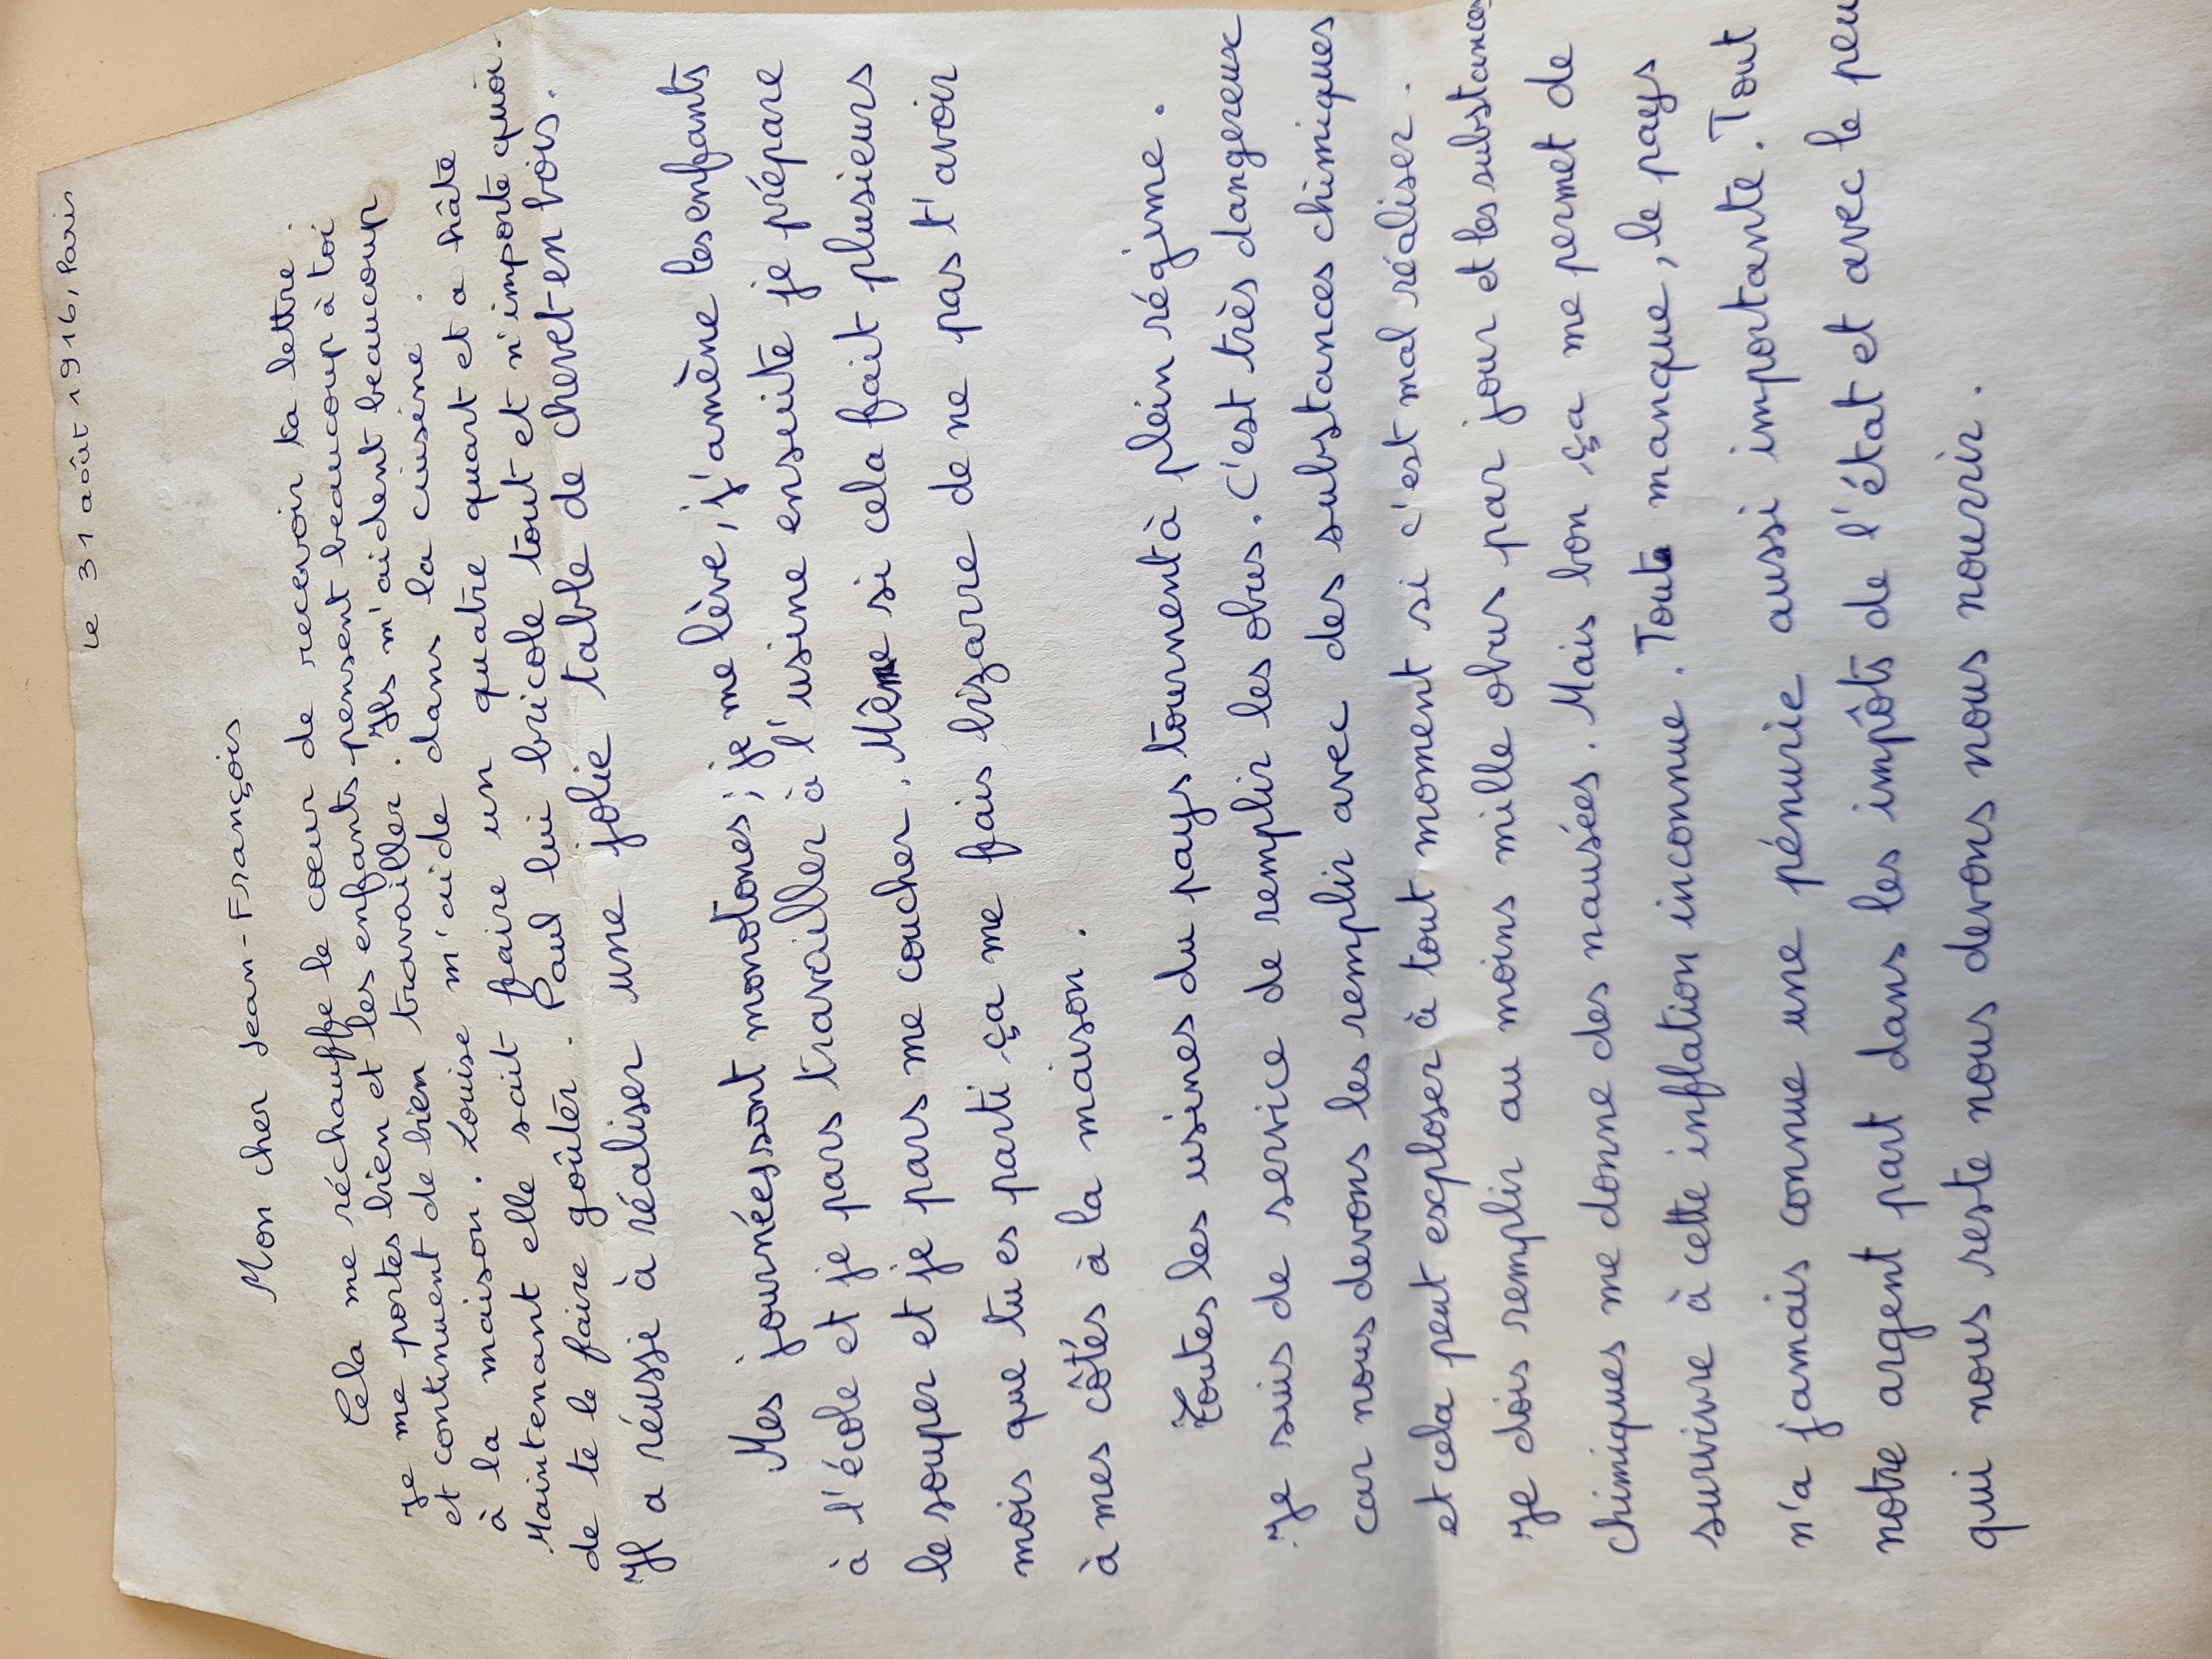 Le 31 août 1916, Paris
Mon cher Jean-François
Cela me réchauffe le cœur de recevoir ta lettre.
Je me portes bien et les enfants pensent beaucoup à toi
et continuent de bien travailler. Ils m'aident beaucoup
à la maison. Louise m'aide dans la cuisine.
Maintenant elle sait faire un quatre quart et a hâte
de te le faire goûter. Paul lui bricole tout et n'importe quoi.
Il a réussi à réaliser une jolie table de chevet-en bois.
Mes journées sont monotones ; je me lève, j'amène les enfants
à l'école et je pars travailler à l'usine ensuite je prépare
le souper et je pars me coucher. Même si cela fait plusieurs
mois que tu es parti ça me fais bizarre de ne pas t'avoir
à mes côtés à la maison.
Toutes les usines du pays tournent à plein régime.
Je suis de service de remplir les obus. C'est très dangereux
car nous devons les remplir avec des substances chimiques
et cela peut exploser à tout moment si c'est mal réaliser.
Je dois remplir au moins mille obus par jour et les substances
chimiques me donne des nausées. Mais bon ça me permet de
survivre à cette inflation inconnue. Tout manque, le pays
n'a jamais connue une pénurie aussi importante. Tout
notre argent part dans les impôts de l'état et avec le peu
qui nous reste nous devons nous nourrir.